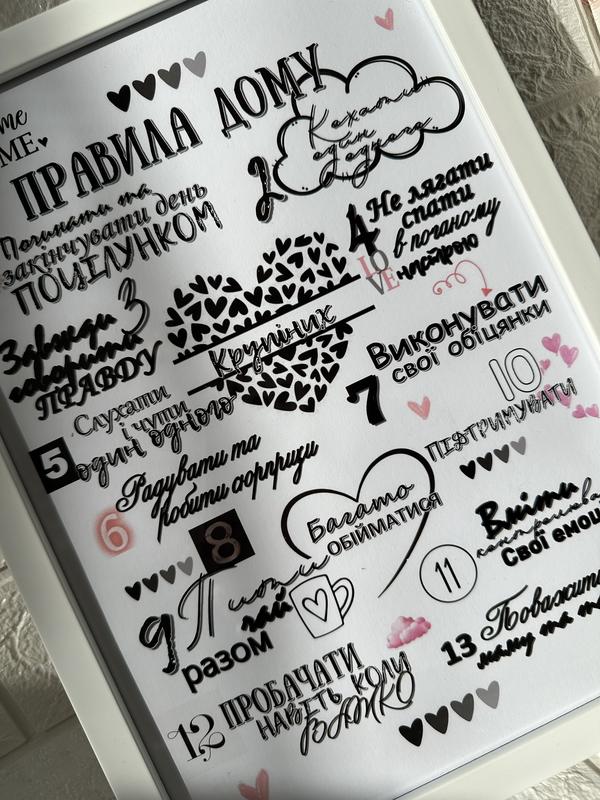 ME
ПРАВИЛА ДОМУ
Починати та
закінчувати день
ПОЦІЛУНКОМ
2
Кохати
один
одного
3
Завжди
говорити
ПРАВДУ
4
Не лягати
спати
в поганому
настрою
LOVE
Крупіник
5
Слухати
і чути
один одного
6
Радувати та
робити сюрпризи
7
Виконувати
свої обіцянки
8
Багато
ОБІЙМАТИСЯ
9
Пити
чай
разом
10
ПІДТРИМУВАТИ
11
Вміти
Свої емоц
12
ПРОБАЧАТИ
НАВІТЬ КОЛИ
ВАЖКО
13
Поважати
маму та